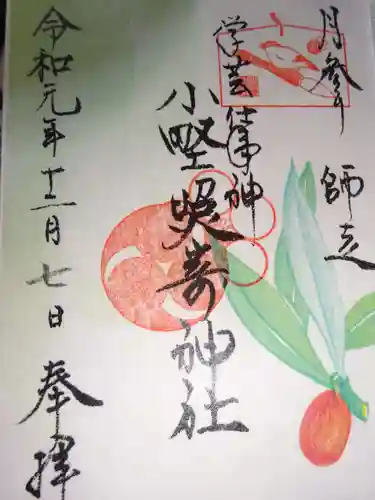 月参り 師走
学芸仕事神
小野照崎神社
令和元年十二月七日 奉拝